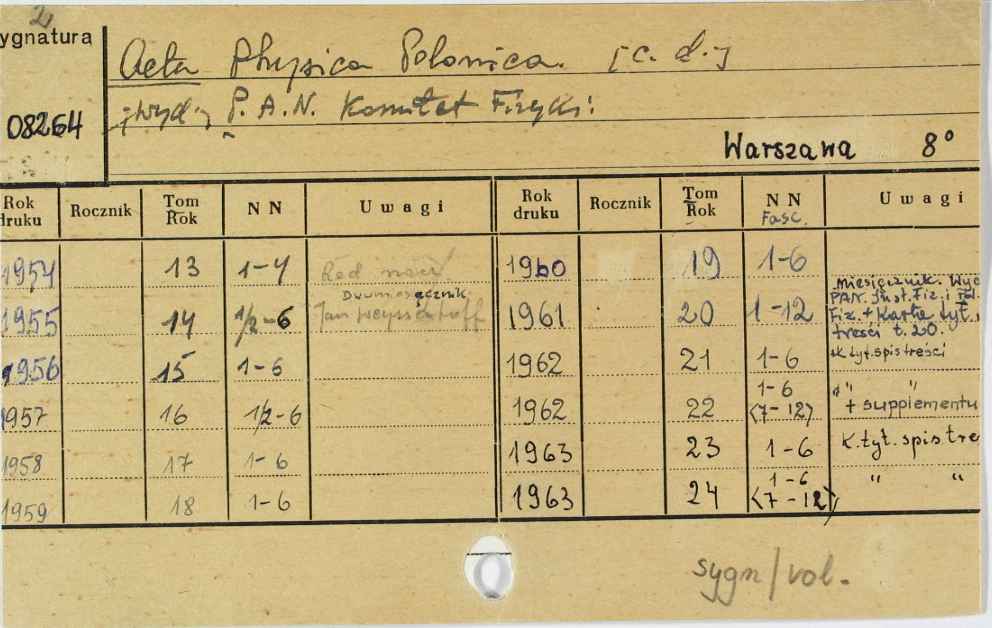 2
ygnatura
Acta Physica Polonica. [c. d.]
[wyd.] P. A. N. Komitet Fizyki.
08264
Warszawa 8°
Rok druku Rocznik Tom Rok N N Uwagi Rok druku Rocznik Tom Rok N N Fasc. Uwagi
1954 13 1-4 Red nacz 1960 19 1-6
Dwumiesięcznik miesięcznik. Wyd
1955 14 1/2-6 Jan Weyssenhoff 1961 20 1-12 PAN. Inst. Fiz. i Pol.
Fiz. + Karta tyt.
treści t. 20.
1956 15 1-6 1962 21 1-6 k tyt. spis treści
1957 16 1/2-6 1962 22 1-6 <7-12> " "
+ supplementu
1958 17 1-6 1963 23 1-6 K. tyt. spis tre
1959 18 1-6 1963 24 1-6 <7-12> " "
sygn/vol.